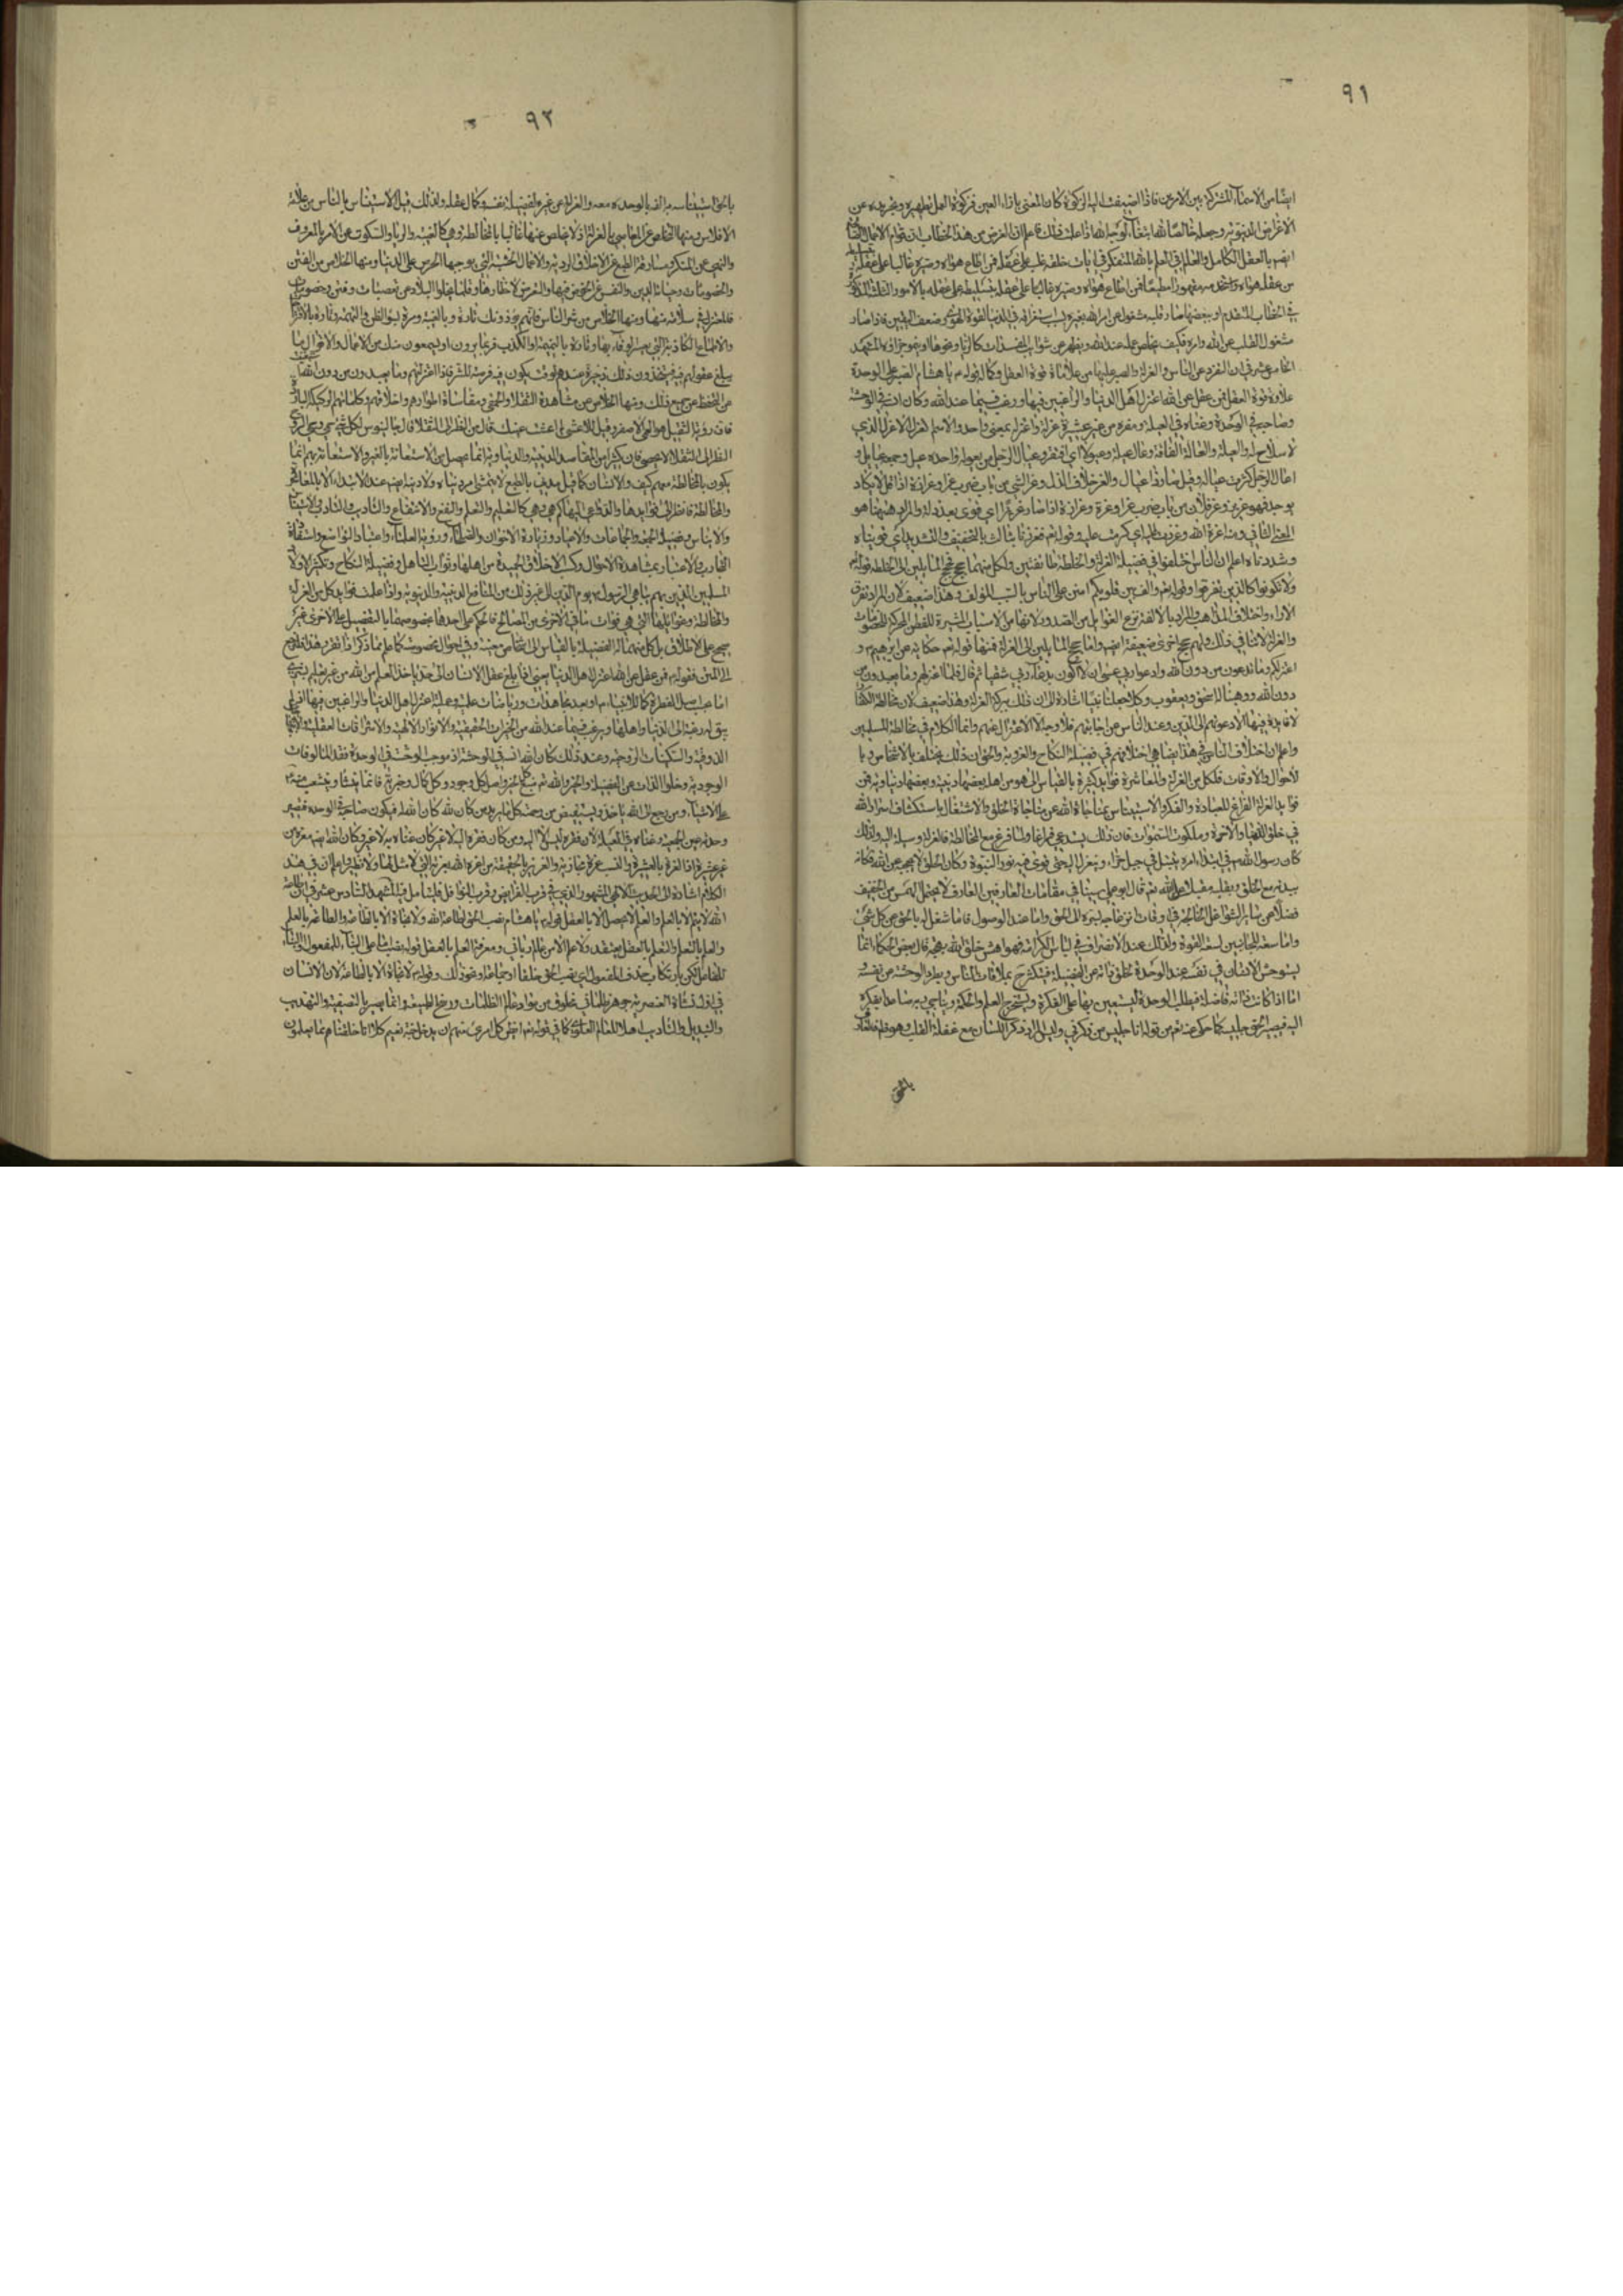 ٩١
ايضا من الاسماء المشتركة بين الامرين فاذا اضيفت اليه الزكوة كان المعنى بازاء العين فزكوة العمل تطهيره وتجريده عن
الاغراض الدنيوية وجعله خالصا لله ابتغاء لوجه الله اذا علمت ذلك فاعلم ان الغرض من هذا الخطاب ان قوام الاعمال
بالعقل الكامل والعلم في العلم بالله المتفكر في ايات خلقه غلب على عقله فمن اطاع هواه وصيره غالبا على عقله
من عقله هواه فمن اطاع هواه وصيره غالبا على عقله بتسليطه على عقله بالامور الثلثة المذكورة
في الخطاب المتقدم او ببعضها صار قلبه مشغولا عن امر الله بغيره بسبب استغراقه في الدنيا لقوة الهوى وضعف اليقين فاذا صار
مشغول القلب عن الله وامره فكيف يخلص عمله عند الله ويطهر عن شوائب المفسدات كالريا ونحوها المشهد
الخامس عشر في ان التفرد عن الناس والعزلة والصبر عليها من علامات قوة العقل وكماله قوله يا هشام الصبر على الوحدة
علامة قوة العقل فمن عقل عن الله اعتزل اهل الدنيا والراغبين فيها ورغب فيما عند الله وكان انسه في الوحشة
وصاحبه في الوحدة وغناه في العيلة ومعزه من غير عشيرة عزله واعتزله بمعنى واحد والاسم العزلة الاعزل الذي
لا سلاح له والعيلة والعالة الفاقة وعال عيلة وعيولا اي افتقر وعيال الرجل من يعوله واحده عيل وجمعه عيايل و
اعال الرجل كثرت عياله وقيل صار ذا عيال والعز خلاف الذل وعز الشي من باب ضرب عزا وعزازة اذا قل لا يكاد
يوجد فهو عزيز وعز فلان من باب ضرب عزا وعزة وعزازة اذا صار عزيزا اي قوى بعد ذلة والمراد هيهنا هو
المعنى الثاني ومنه اعزه الله وعززت عليه اي كرمت عليه وقوله تعالى فعززنا بثالث بالتخفيف والتشديد اي قويناه
وشددناه اعلم ان الناس اختلفوا في فضيلة العزلة والخلطة طائفتين ولكل منهما حجج فحجج المايلين الى الخلطة قوله تعالى
ولا تكونوا كالذين تفرقوا وقوله تعالى والف بين قلوبكم امتن على الناس بالسبب المؤلف وهذا ضعيف لان المراد تفرق
الاراء واختلاف المذاهب والمراد بالالفة نزع الغوايل من الصدور لانها من الاسباب المثيرة للفتن المحركة للخصومات
والعزلة لا تنافي ذلك ولهم حجج اخرى ضعيفة ايضا واما حجج المايلين الى العزلة فمنها قوله تعالى حكاية عن ابرهيم و
اعتزلكم وما تدعون من دون الله وادعوا ربي عسى ان لا اكون بدعاء ربي شقيا ثم قال فلما اعتزلهم وما يعبدون من
دون الله وهبنا له اسحق ويعقوب وكلا جعلنا نبيا اشارة الى ان ذلك ببركة العزلة وهذا ضعيف لان مخالطة الكفار
لا فايدة فيها الا دعوتهم الى الدين وعند الياس من اجابتهم فلا وجه الا الاعتزال عنهم وانما الكلام في مخالطة المسلمين
واعلم ان اختلاف الناس في هذا يضاهي اختلافهم في فضيلة النكاح والعزوبة والحق ان ذلك يختلف بالاشخاص وبا
لاحوال والاوقات فلكل من العزلة والمعاشرة فوايد كثيرة بالقياس الى قوم من اهلها بعضها دينية وبعضها دنياوية فمن
فوايد العزلة الفراغ للعبادة والفكر والاستيناس بمناجاة الله عن مناجاة الخلق والاشتغال باستكشاف اسرار الله
في خلق الدنيا والاخرة وملكوت السموات فان ذلك يستدعي فراغا ولا فراغ مع المخالطة فالعزلة وسيلة اليه ولذلك
كان رسول الله في ابتداء امره يتبتل في جبل حراء وينعزل اليه حتى قوى فيه نور النبوة وكان الخلق لا يحجبه عن الله فكان
بيدنه مع الخلق وبقلبه مقبلا على الله ثم قال ابو علي سينا في مقامات العارفين العارف لا يحتمل الهمس من الحفيف
فضلا عن ساير الشواغل الخالجة في اوقات انزعاجه بسره الى الحق واما عند الوصول فاما شغل له بالحق عن كل شئ
واما سعة للجانبين لسعة القوة وكذلك عند الانصراف في لباس الكرامة فهو اهش خلق الله ببهجته قال بعض الحكماء انما
يستوحش الانسان في نفسه عند الوحدة لخلو ذاته عن الفضيلة فيتكثر ح بملاقات الناس ويطرد الوحشة عن نفسه
اما اذا كانت ذاته فاضلة فيطلب الوحدة ليستعين بها على الفكرة ويستخرج العلم والحكمة
انا جليس من ذكرني وليس المراد ذكر اللسان مع غفلة القلب
بالحق
٩٢
بالحق استيناسه بالوحدة معه والعزلة عن غيره لفضيلة نفسه وكمال عقله ولذلك قيل الاستيناس بالناس من علامة
الافلاس ومنها التخلص عن المعاصي بالعزلة اذ لا يخلص عنها غالبا بالمخالطة وهي كالغيبة والريا والسكوت عن الامر بالمعروف
والنهي عن المنكر ومسارقة الطبع عن الاخلاق الردية والاعمال الخبيثة التي يوجبها الحرص على الدنيا ومنها الخلاص من الفتن
والخصومات وصيانة الدين والنفس عن الخوض فيها والتعرض لاخطارها وقلما يخلو البلاد عن تعصبات وفتن وخصومات
فالمعتزل في سلامة منها ومنها الخلاص من شر الناس فانهم يؤذونك تارة بالغيبة ومرة بسوء الظن والتهمة وتارة بالاقتراحات
والاطماع الكاذبة التي يعسر الوفاء بها وتارة بالنميمة او الكذب فربما يرون او يسمعون منك من الاعمال والاقوال ما
يبلغ عقولهم فيتخذون ذلك ذخيرة عندهم لوقت يكون فيه فرصة للشر فاذا اعتزلتهم وما يعبدون من دون الله
عن جميع ذلك ومنها الخلاص من مشاهدة الثقلاء والحمقى ومقاساة اطوارهم واخلاقهم
فان رؤية الثقيل هو العمى الاصغر وقيل للاعمش لم اعمشت عينك قال من النظر الى الثقلا قال جالينوس لكل شئ حمى وحمى الروح
النظر الى الثقلاء فان كثيرا من المقاصد الدينية والدنياوية انما يحصل من الاستعانة بالغير والاستعانة بهم انما
يكون بالمخالطة معهم كيف والانسان كما قيل مدني بالطبع لا يتمشى امر دنياه ولا دينه ايضا عند الابتداء الا بالمعاشرة
والمخالطة فانظر الى فوايدها والدواعي اليها كم هي وهي كالتعليم والتعلم والنفع والانتفاع والتاديب والتادب والاستيناس
والايناس وفضيلة الجمعة والجماعات والاعياد وزيارة الاخوان والصلحاء ورؤية العلماء واعتياد التواضع واستفادة
التجارب والاعتبار بمشاهدة الاحوال وكسب الاخلاق الحميدة من اهلها وثواب التاهل وفضيلة النكاح وتكثير الاولاد
المسلمين الذين بهم يباهي الرسول يوم الدين الى غير ذلك من المنافع الدينية والدنيوية واذا علمت فوايد كل من العزلة
والمخالطة وغوائلها التي هي فوات ما في الاخرى من المصالح فالحكم على احدها بخصوصها بالتفضيل على الاخرى غير
صحيح على الاطلاق بل كل منهما له الفضيلة بالقياس الى اشخاص معينة وفي احوال مخصوصة كما علم مما ذكر اذا تقرر هذا فلنرجع
الى المتن فقوله فمن عقل عن الله اعتزل اهل الدنيا يعني اذا بلغ عقل الانسان الى حد ياخذ العلم من الله من غير تعليم بشري
اما بحسب اصل الفطرة كما للانبياء او بعد مجاهدات ورياضات علمية وعملية اعتزل اهل الدنيا والراغبين فيها اذ لم
يبق له رغبة الى الدنيا واهلها ويرغب فيما عند الله من الخيرات الحقيقية والانوار الالهية والاشراقات العقلية
الذوقية والسكينات الروحية وعند ذلك كان الله انسه في الوحشة اذ موجب الوحشة في الوحدة فقد المالوفات
الوجودية وخلو الذات عن الفضيلة والخير والله تعالى منبع كل خير واصل كل وجود وكل كمال
على الاشياء ومن رجع الى الله ياخذ ويستفيض من رحمته كلما يريد من كان لله كان الله له فيكون صاحبه في الوحدة فتصير
وحدته عين الجمعية وغناه في العيلة لان فقره ليس الا اليه ومن كان فقره اليه لا غير كان غناه به لا غير وكان الله معزه من
غير عشيرة اذ العزة بالعشيرة والنسب عزة مجازية والعزيز بالحقيقة من اعزه الله بعزته التي لا مثل لها ولا نظير واعلم ان في هذا
الكلام اشارة الى الحديث الالهي المشهور الذي في قرب الفرائض وقرب النوافل فليتامل فيه المشهد السادس عشر في ان طاعة
الله لا يتم الا بالعلم والعلم لا يحصل الا بالعقل قوله يا هشام نصب الحق لطاعة الله ولا نجاة الا بالطاعة والطاعة بالعلم
والعلم بالتعلم والتعلم بالعقل يعتقد ولا علم الا من عالم رباني ومعرفة العلم بالعقل قوله نصب اما على البناء للمفعول او البناء
للفاعل لكن بارتكاب حذف المفعول اي نصب الحق خلقا او جماعة او نحو ذلك وقوله لا نجاة الا بالطاعة لان الانسان
في اول نشاة العنصرية جوهر ظلماني مخلوق من مواد عالم الظلمات وبرزخ الطبيعة وانما يصير بالتصفية والتهذيب
والتبديل والتاديب اهلا للعالم العلوي كما في قوله تعالى ايطمع كل امرئ منهم ان يدخل جنة نعيم كلا انا خلقناهم مما يعلمون